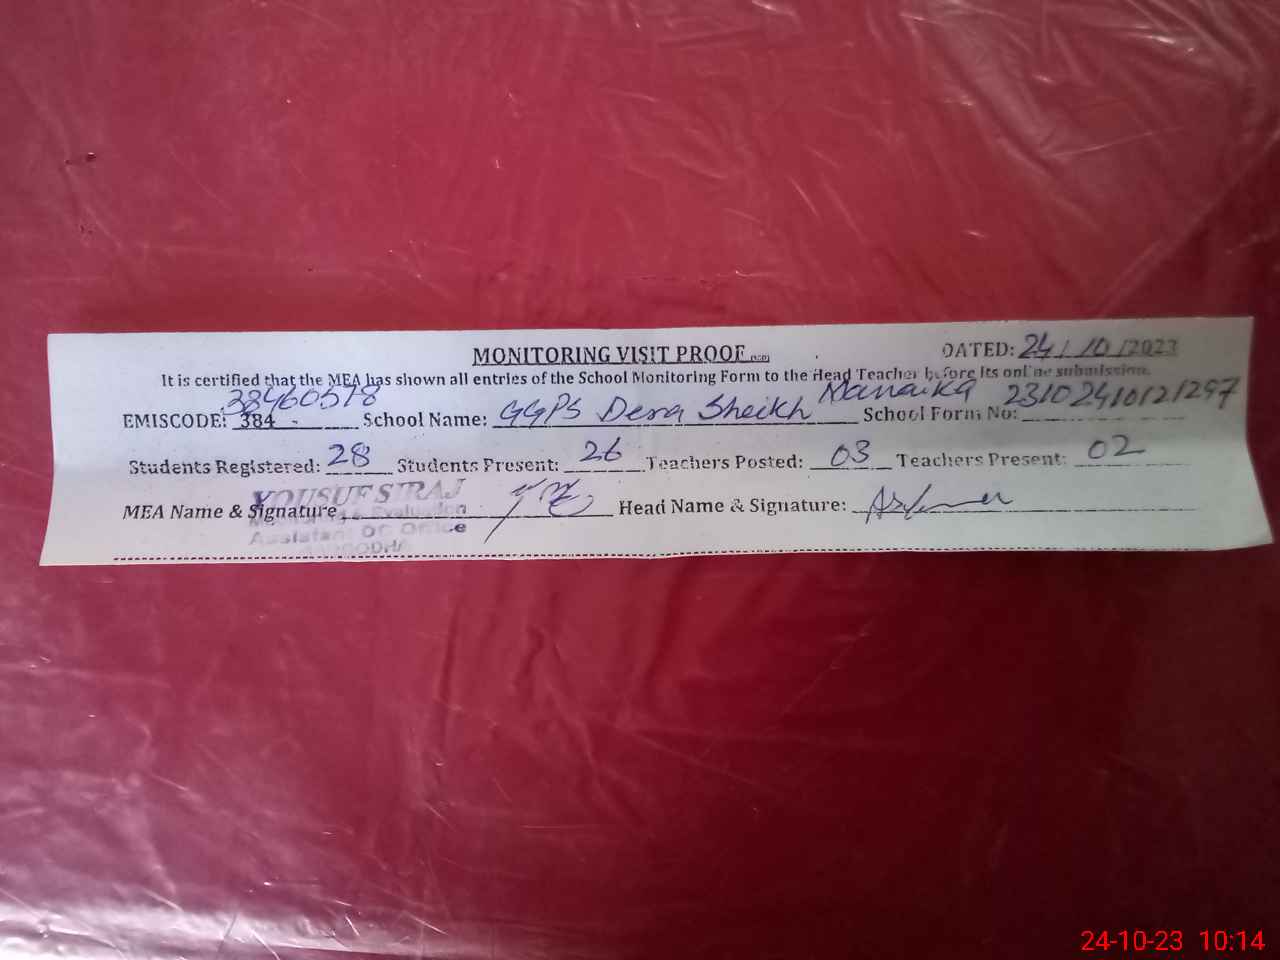 MONITORING VISIT PROOF
DATED: 24/10/2023
It is certified that the MEA has shown all entries of the School Monitoring Form to the Head Teacher before its online submission.
EMISCODE: 384 - 38460518 School Name: GGPS Dera Sheikh Manaika School Form No: 23102410121297
Students Registered: 28 Students Present: 26 Teachers Posted: 03 Teachers Present: 02
MEA Name & Signature Head Name & Signature:
YOUSUF SIRAJ
Monitoring & Evaluation
Assistant DC Office
SARGODHA
24-10-23 10:14